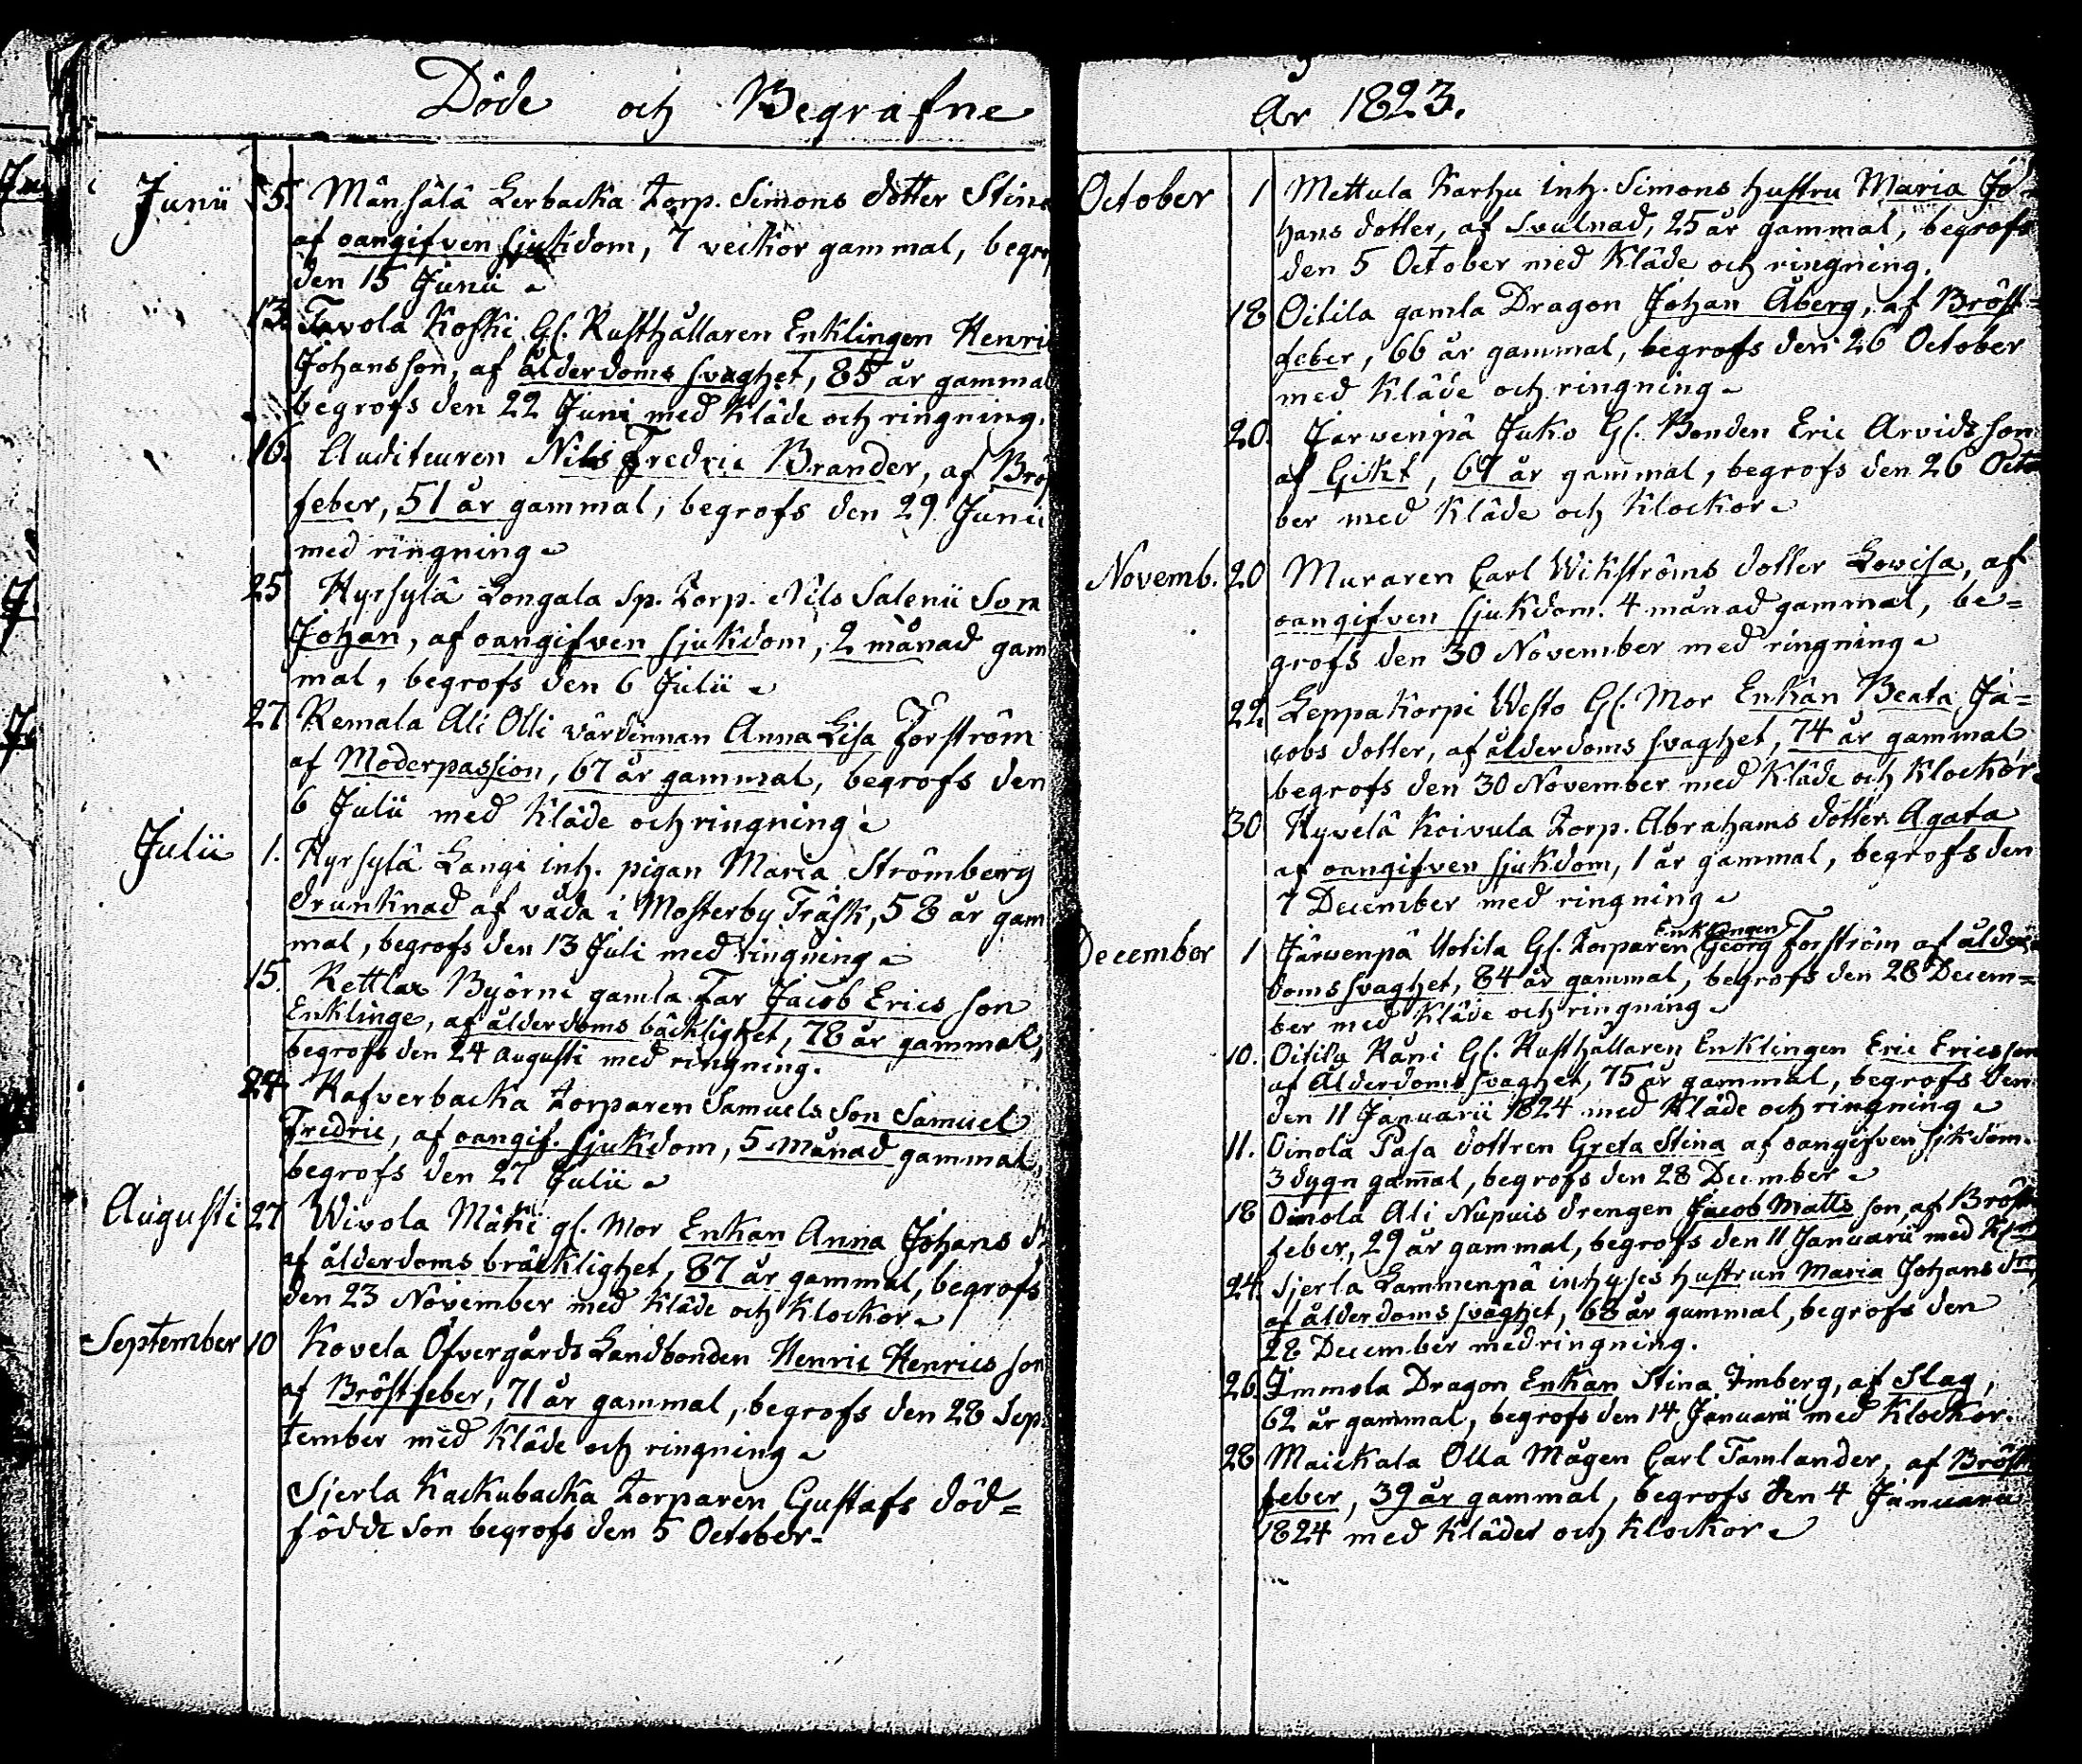 Döde och Begrafne
Junii 5. Månsälä Lerbacka Torp. Simons dotter Stina
af oangifven sjukdom, 7 veckor gammal, begr
den 15 Junii
13. Tavola Koski Gl. Rusthållaren Enklingen Henric
Johansson, af ålderdoms svaghet, 85 år gammal
begrofs den 22 Juni med Kläde och ringning.
16. Auditeuren Nils Fredric Brander, af Brös
feber, 51 år gammal, begrofs den 29 Junii
med ringning
25 Hyrsylä Longala Sp. Torp. Nils Salenii Son
Johan, af oangifven sjukdom, 2 månad gam
mal, begrofs den 6 Julii
27 Remala Ali Olli värdinnan Anna Lisa Forström
af Moderpassion, 67 år gammal, begrofs den
6 Julii med Kläde och ringning
Julii 1. Hyrsylä Langi inh. pigan Maria Strömberg
drunknad af våda i Mosterby Träsk, 58 år gam
mal, begrofs den 13 Juli med ringning
15. Rettlax Byörni gamla Far Jacob Erics son
Enklinge, af ålderdoms bäcklighet, 78 år gammal,
begrofs den 24 augusti med ringning.
24 Rafverbacka Torparen Samuels Son Samuel
Fredric, af oangif. sjukdom, 5 Månad gammal,
begrofs den 27 Julii
Augusti 27 Wivola Mäki gl. Mor Enkan Anna Johans d:r
af ålderdoms bräcklighet, 87 år gammal, begrofs
den 23 November med Kläde och Klockor
September 10 Kovela Öfvergårds Landbonden Henric Henrics son
af Bröstfeber, 71 år gammal, begrofs den 28 Sep
tember med Kläde och ringning
Sjerla Kackubacka Torparen Gustafs död=
födde son begrofs den 5 October
År 1823.
October 1 Mettula Karhu inh. Simons hustru Maria Jo=
hans dotter, af Svulnad, 25 år gammal, begrofs
den 5 October med Kläde och ringning.
18 Oitila gamla Dragon Johan Åberg, af Bröst=
feber, 66 år gammal, begrofs den 26 October
med Kläde och ringning
20. Järvenpä Juko Gl. Bonden Eric Arvidsson
af Gikt, 67 år gammal, begrofs den 26 Octo
ber med Kläde och Klockor
Novemb. 20 Muraren Carl Wikströms dotter Lovisa, af
oangifven sjukdom. 4 månad gammal, be=
grofs den 30 November med ringning
22. Leppäkorpi Westo Gl. Mor Enkan Beata Ja=
cobs dotter, af ålderdoms svaghet, 74 år gammal
begrofs den 30 November med Kläde och Klockor
30 Hyvelä Koivula Torp. Abrahams dotter Agata
af oangifven sjukdom, 1 år gammal, begrofs den
7 December med ringning
December 1 Järvenpä Uotila Gl. Torparen Enklingen Georg Forström af ålder
doms svaghet, 84 år gammal, begrofs den 28 Decem=
ber med Kläde och ringning
10. Oitila Räni Gl. Rusthållaren Enklingen Eric Ericsson
af Ålderdoms svaghet, 75 år gammal, begrofs den
den 11 Januarii 1824 med Kläde och ringning
11. Oinola Pasa dottren Greta Stina af oangifven sjkdom.
3 dygn gam̄al, begrofs den 28 December
18 Oinola Ali Nupuis drengen Jacob Matts son, af Bröst
feber, 29 år gammal, begrofs den 11 Januarii med Kl
24. Sjerla Lammenpä inhyses hustrun Maria Johans d:r
af ålderdoms svaghet, 68 år gammal, begrofs den
28 December med ringning.
26. Immola Dragon Enkan Stina Imberg, af Slag,
62 år gammal, begrofs den 14 Januarii med Klockor.
28 Maickala Olla Mågen Carl Tamlander, af Bröst
feber, 39 år gammal, begrofs den 4 Januarii
1824 med Kläder och Klockor